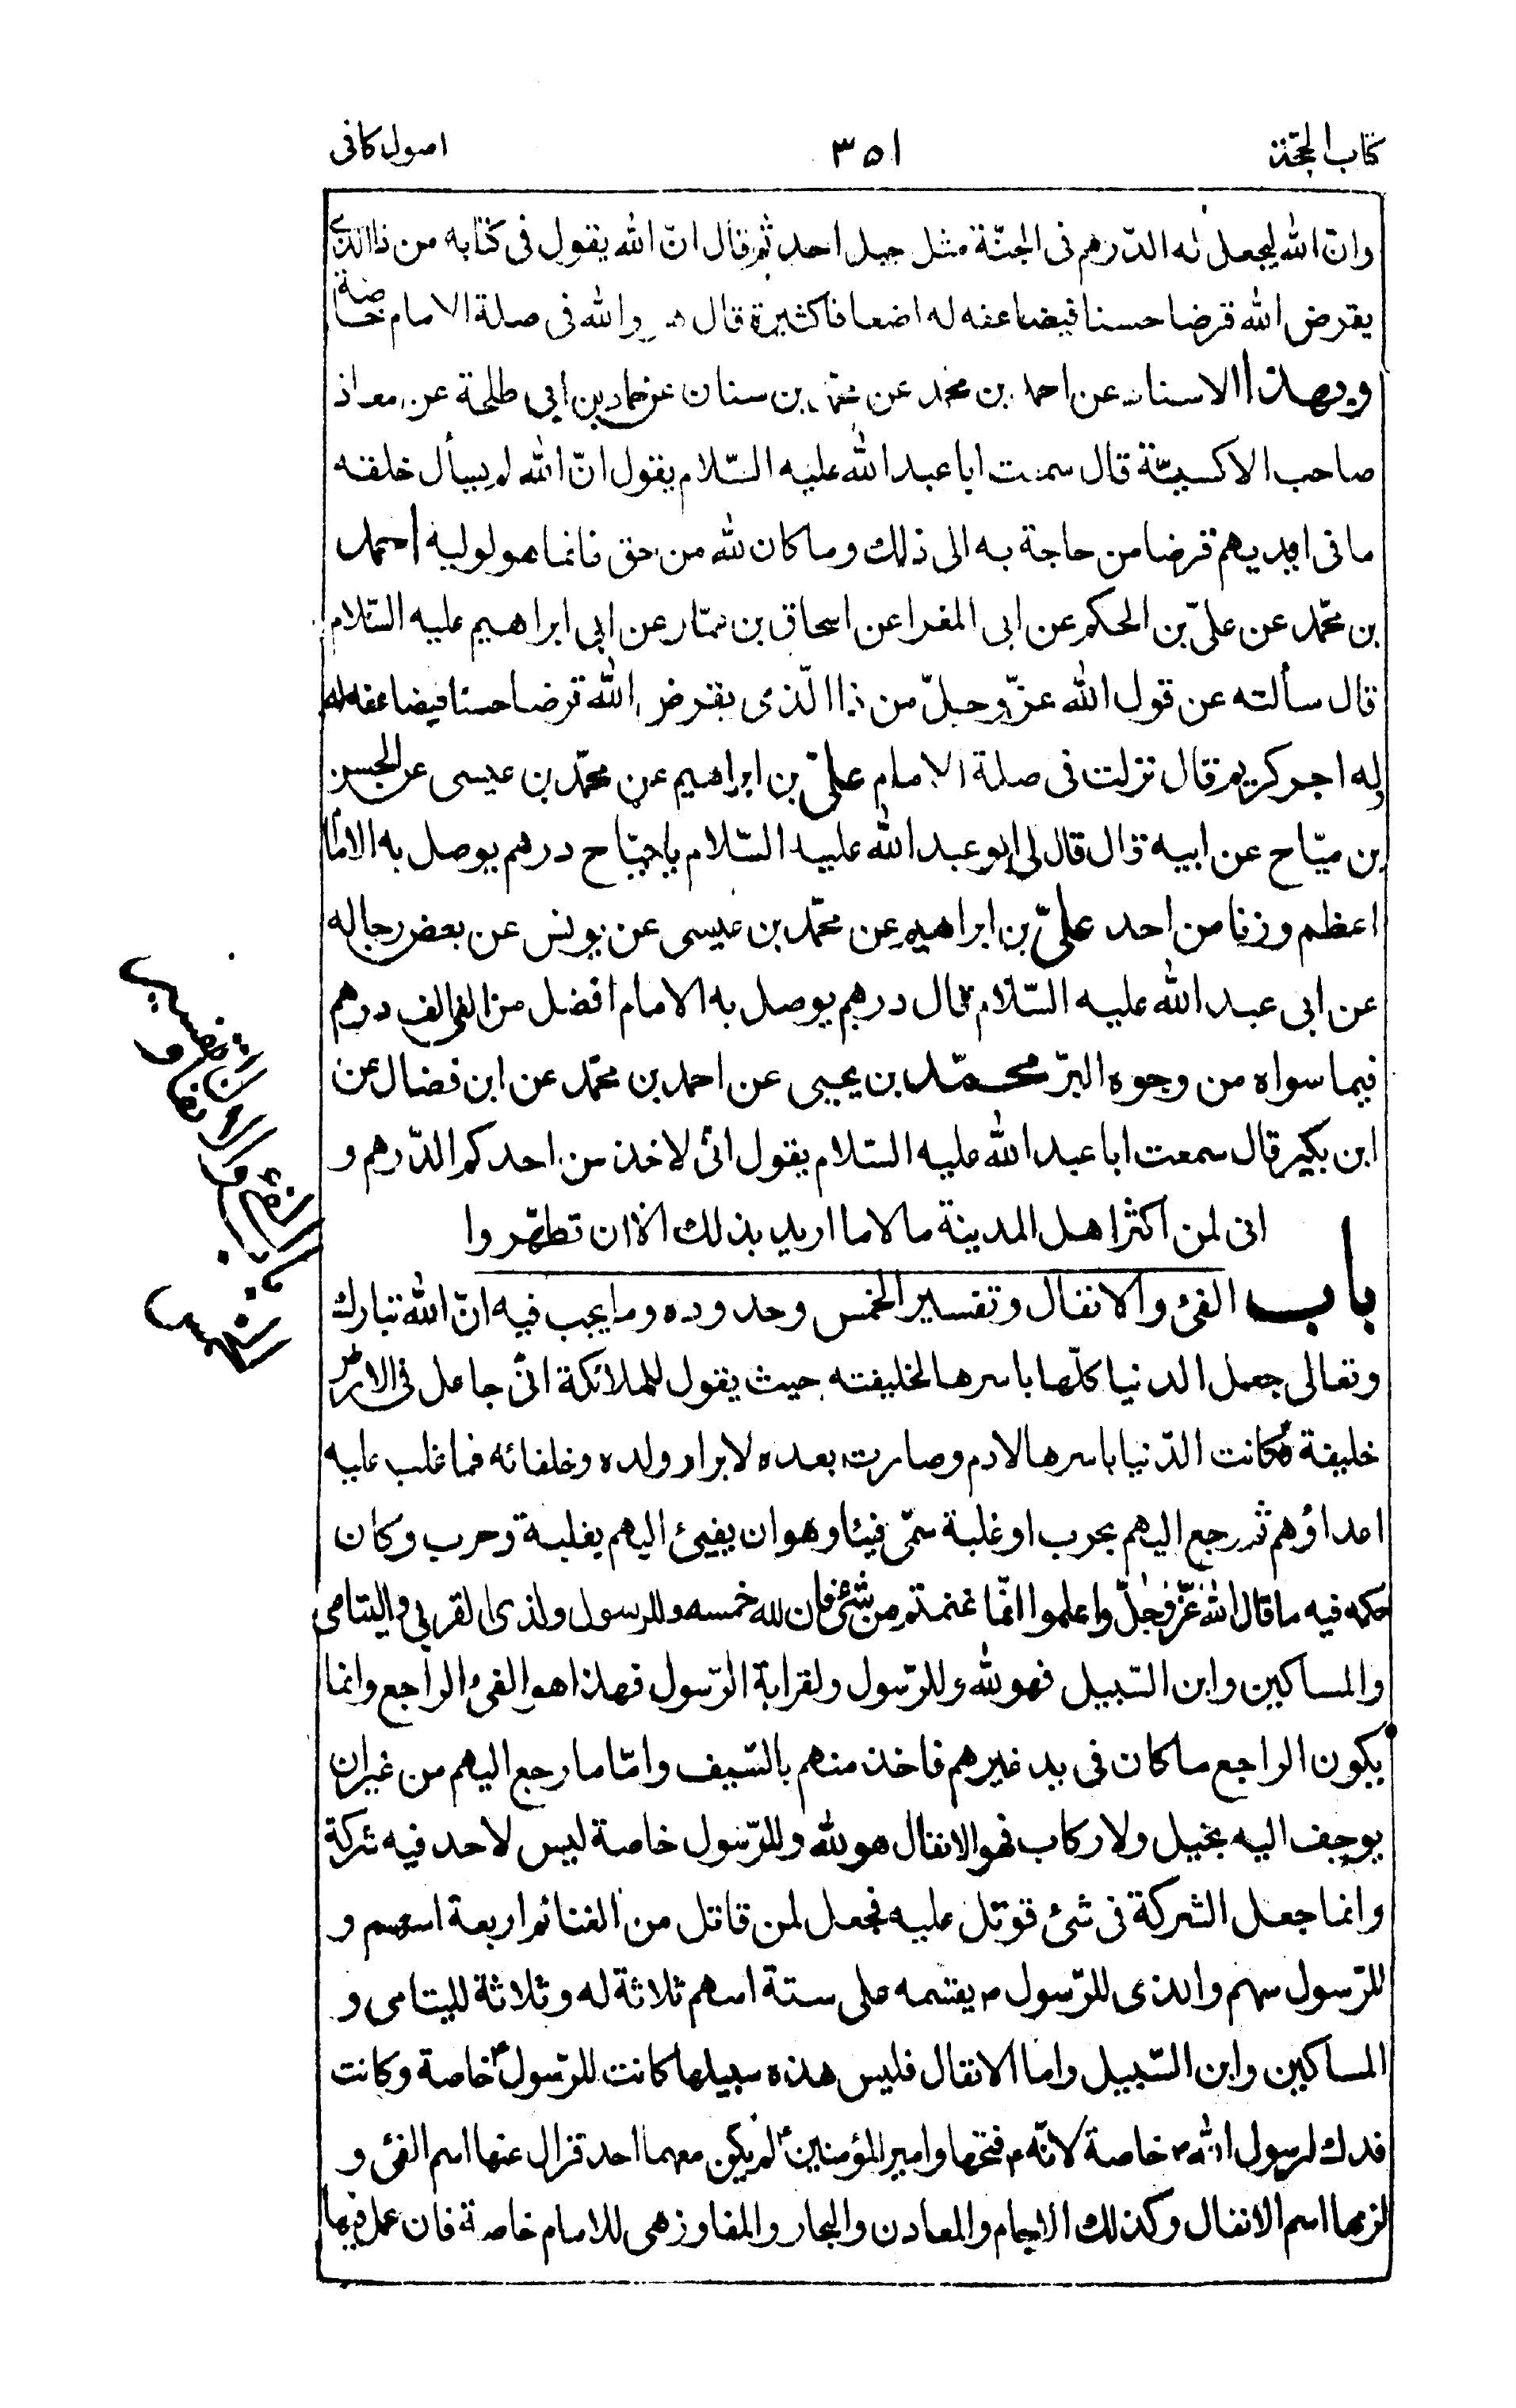 كتاب الحجّة
٣٥١
اصول كافى
وانّ الله ليجعل له الدّرهم فى الجنّة مثل جبل احد ثم قال انّ الله يقول فى كتابه من ذا الذى
يقرض الله قرضا حسنا فيضاعفه له اضعافا كثيرة قال هو والله فى صلة الامام خاصة
وبهذا الاسناد عن احمد بن محمد عن محمد بن سنان عن حماد بن ابى طلحة عن معاذ
صاحب الاكسيّة قال سمعت ابا عبد الله عليه السّلام يقول انّ الله لم يسأل خلقه
ما فى ايديهم قرضا من حاجة به الى ذلك وما كان لله من حق فانما هو لوليه احمد
بن محمّد عن علىّ بن الحكم عن ابى المغرا عن اسحاق بن عمّار عن ابى ابراهيم عليه السّلام
قال سألته عن قول الله عزّ وجلّ من ذا الّذى يقرض الله قرضا حسنا فيضاعفه له
وله اجر كريم قال نزلت فى صلة الامام علىّ بن ابراهيم عن محمّد بن عيسى عن الحسن
بن ميّاح عن ابيه قال قال لى ابو عبد الله عليه السّلام يا ميّاح درهم يوصل به الامام
اعظم وزنا من احد علىّ بن ابراهيم عن محمّد بن عيسى عن يونس عن بعض رجاله
عن ابى عبد الله عليه السّلام قال درهم يوصل به الامام افضل من الفى الف درهم
فيما سواه من وجوه البرّ محمّد بن يحيى عن احمد بن محمّد عن ابن فضال عن
ابن بكير قال سمعت ابا عبد الله عليه السّلام يقول انّى لاخذ من احدكم الدّرهم و
انى لمن اكثر اهل المدينة مالا ما اريد بذلك الّا ان تطهّروا
باب الفئ والانفال وتفسير الخمس وحدوده وما يجب فيه انّ الله تبارك
وتعالى جعل الدنيا كلّها باسرها لخليفته حيث يقول للملائكة انّى جاعل فى الارض
خليفة فكانت الدّنيا باسرها لادم وصارت بعده لابرار ولده وخلفائه فما غلب عليه
اعداؤهم ثم رجع اليهم بحرب او غلبة سمّى فيئا وهو ان يفيئ اليهم بغلبة وحرب وكان
حكمه فيه ما قال الله عزّ وجلّ واعلموا انّما غنمتم من شئ فان لله خمسه وللرسول ولذى القربى واليتامى
والمساكين وابن السّبيل فهو لله وللرّسول ولقرابة الرّسول فهذا هو الفئ الراجع وانما
يكون الراجع ما كان فى يد غيرهم فاخذ منهم بالسّيف وامّا ما رجع اليهم من غير ان
يوجف اليه بخيل ولا ركاب فهو الانفال هو لله وللرّسول خاصة ليس لاحد فيه شركة
وانما جعل الشركة فى شئ قوتل عليه فجعل لمن قاتل من الغنائم اربعة اسهم و
للرّسول سهم والذى للرّسول ص يقسمه على ستة اسهم ثلاثة له وثلاثة لليتامى و
المساكين وابن السّبيل واما الانفال فليس هذه سبيلها كانت للرّسول ص خاصة وكانت
فدك لرسول الله ص خاصة لانّه ص فتحها وامير المؤمنين ع لم يكن معهما احد فزال عنها اسم الفئ و
لزمها اسم الانفال وكذلك الاجام والمعادن والبحار والمفاوز هى للامام خاصة فان عمل فيها
باب الفئ و
الانفال و تفسير
الخمس